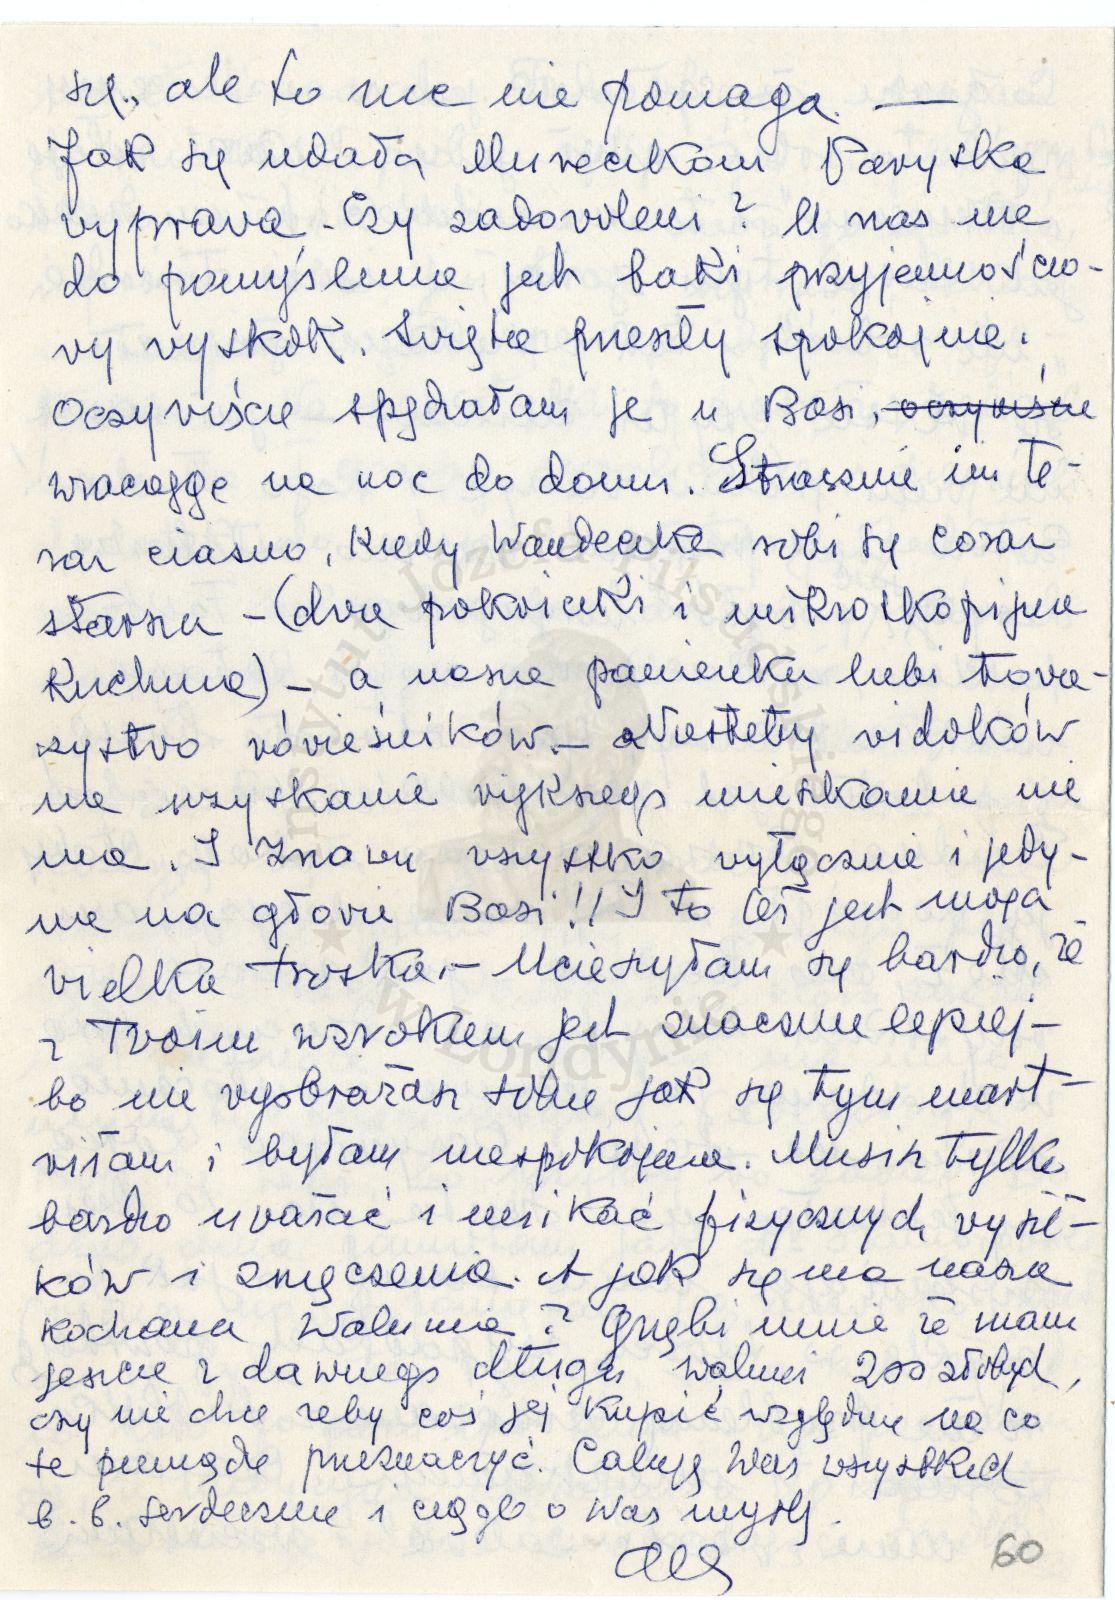 się, ale to nic nie pomaga. —
Jak się udała Mureczkom Paryska
vyprava. Czy zadovoleni? U nas nie
do pomyślenia jest taki przyjemnościo-
vy vyskok. Święta przeszły spokojnie.
Oczyviście spędzałam je u Basi, oczyviście
wracając na noc do domu. Strasznie im te-
raz ciasno, kiedy Wandeczka robi się coraz
starsza – (dva pokoiczki i mikroskopijna
kuchnia) – a nasza panienka lubi tova-
rzystvo róvieśników. – Niestety vidoków
na uzyskanie viększego mieszkania nie
ma. I znavu vszystko vyłącznie i jedy-
nie na głovie Basi!! I to też jest moja
vielka troska. – Ucieszyłam się bardzo, że
z Tvoim wzrokiem jest znacznie lepiej –
bo nie vyobrażasz sobie jak się tym mart-
viłam i byłam niespokojna. Musisz tylko
bardzo uvażać i unikać fizycznych vysił-
ków i zmęczenia. A jak się ma nasza
kochana Walunia? Gnębi mnie że mam
jeszcze z dawnego długu Waluni 200 złotych,
czy nie chce żeby coś jej kupić względnie na co
te pieniądze przeznaczyć. Całuję Was wszystkich
b. b. serdecznie i ciągle o Was myślę.
Ala
60
Instytut Józefa Piłsudskiego
w Londynie